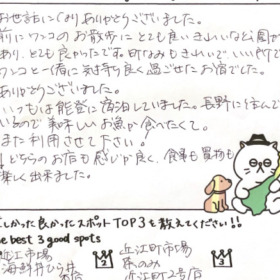 お世話になりありがとうございました。
前にワンコのお散歩にとても良いきれいな公園が
あり、とても良かったです。町なみもきれいで、いい所で
ワンコと一緒に気持ち良く過ごせたお宿でした。
ありがとうございました。
いつもは能登に宿泊していました。長野に住んで
いるので美味しいお魚が食べたくて。
また利用させて下さい!
どちらのお店も感じが良く、食事も買物も
楽しく出来ました。
しかった良かったスポットTOP3を教えてください!!
he best 3 good spots
近江町市場
海鮮丼ひら井
2
近江町市場
3